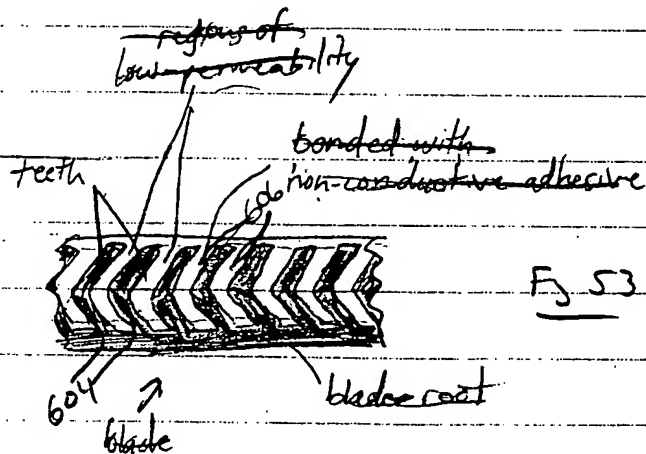 regions of
low permeability
bonded with
non-conductive adhesive
teeth
606
Fig 53
604
blade
blade root